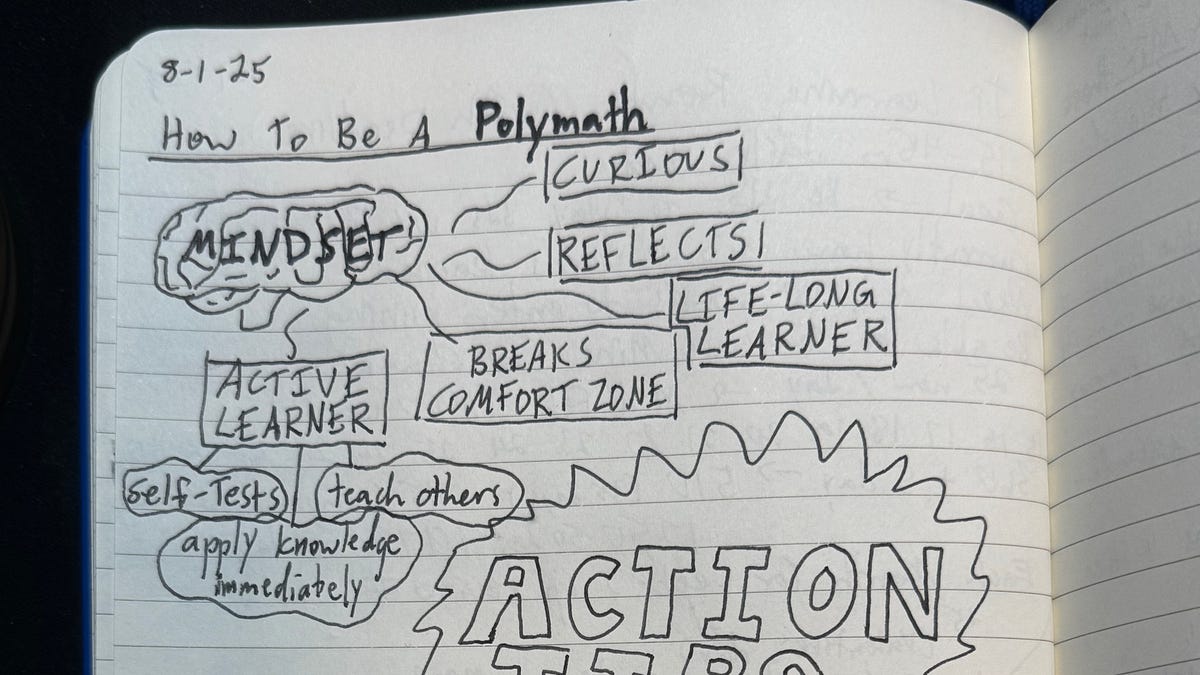 8-1-25
How To Be A Polymath
MINDSET
CURIOUS
REFLECTS
LIFE-LONG
LEARNER
BREAKS
COMFORT ZONE
ACTIVE
LEARNER
Self-Tests
teach others
apply knowledge
immediately
ACTION